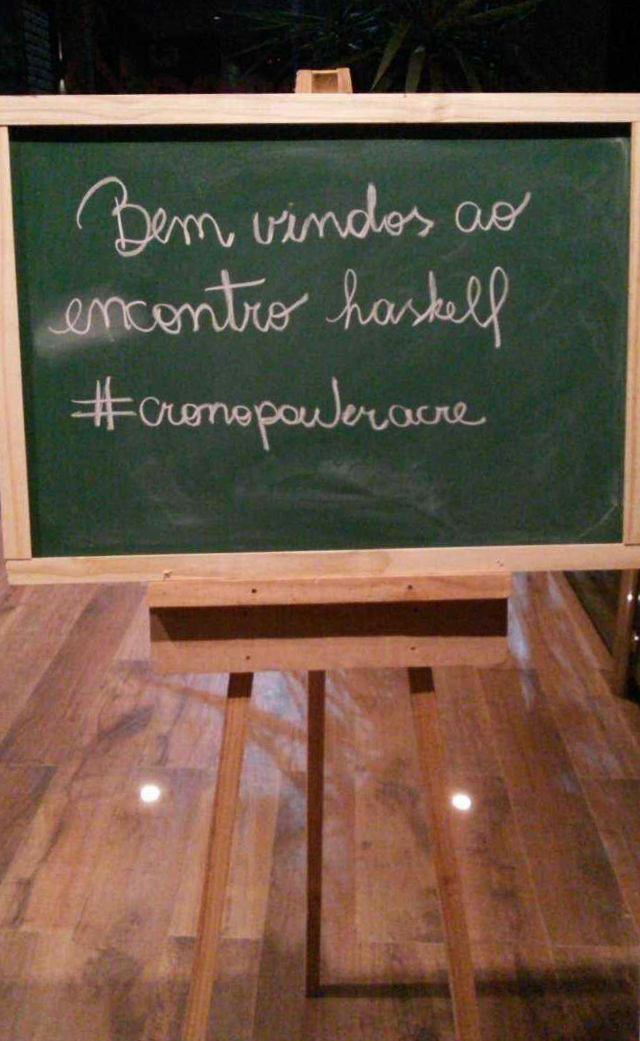 Bem vindos ao
encontro haskell
#cronopoweracre